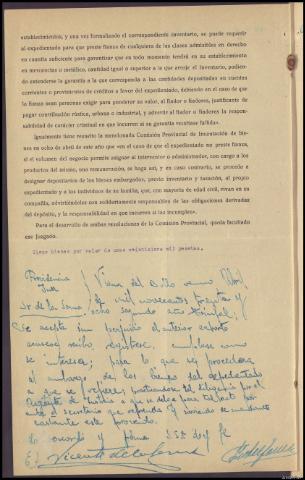 establecimientos, y una vez formalizando el correspondiente inventario, se puede requerir
al expedientado para que preste fianza de cualquiera de las clases admitidas en derecho
en cuantía suficiente para garantizar que en todo momento tendrá en su establecimiento
en mercancías o metálico, cantidad igual o superior a la que arroje el inventario, pudien-
do extenderse la garantía a la que corresponda a las cantidades depositadas en cuentas
corrientes o provinientes de créditos a favor del expedientado, debiendo en el caso de que
la fianza sean personas exigir para ponderar su valor, al fiador o fiadores, justificante de
pagar contribución rústica, urbana o industrial, y advertir al fiador o fiadores la responsa-
bilidad de carácter criminal en que incurren si no garantiza resultase fallidas.
Igualmente tiene resuelto la mencionada Comisión Provincial de Incautación de bie-
nes en ocho de abril de este año que «en el caso de que el expedientado no preste fianza,
si el volumen del negocio permite asignar al interventor o administrador, con cargo a los
productos del mismo, una remuneración, se haga así, y en caso contrario, se proceda a
designar depositarios de los bienes embargados, previo inventario y tasación, al propio
expedientado y a los individuos de su familia, que, con mayoría de edad civil, vivan en su
compañía, advirtiéndoles son solidariamente responsables de las obligaciones derivadas
del depósito, y la responsabilidad en que incurren al las incumplen».
Para el desarrollo de ambas resoluciones de la Comisión Provincial, queda facultado
ese Juzgado.
Tiene bienes por valor de unas veinticinco mil pesetas.
Providencia
Juez
Sr de la Serna
de mil novecientos treinta y
ocho segundo año triunfal;
se acepta sin perjuicio el anterior exhorto
acusese recibo, registrese, cumplase como
se interesa; para lo que se procedera
al embargo de los bienes del expedientado
a que se refiere, practicandose tal diligencia por el
Agente
ante el secretario que refrenda
bastante este proveido.
Lo acordó y firma SSª doy fe
Vicente de la Serna